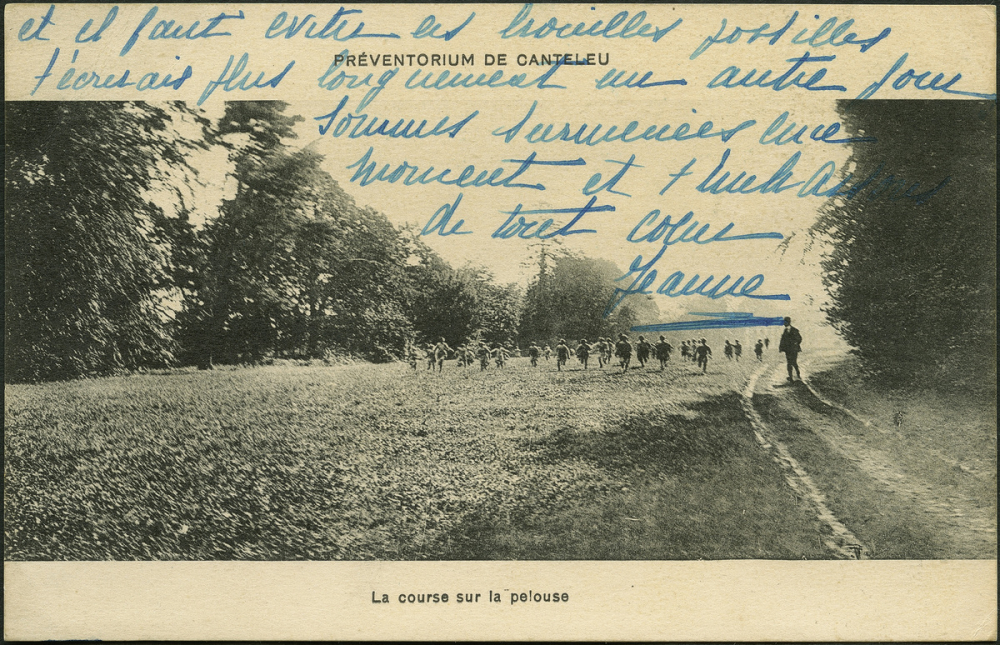 et il faut eviter les brouilles possibles
PRÉVENTORIUM DE CANTELEU
t'écrirais plus longuement un autre jour
sommes surmenées en ce
moment et t'embrassons
de tout coeur
Jeanne
La course sur la pelouse